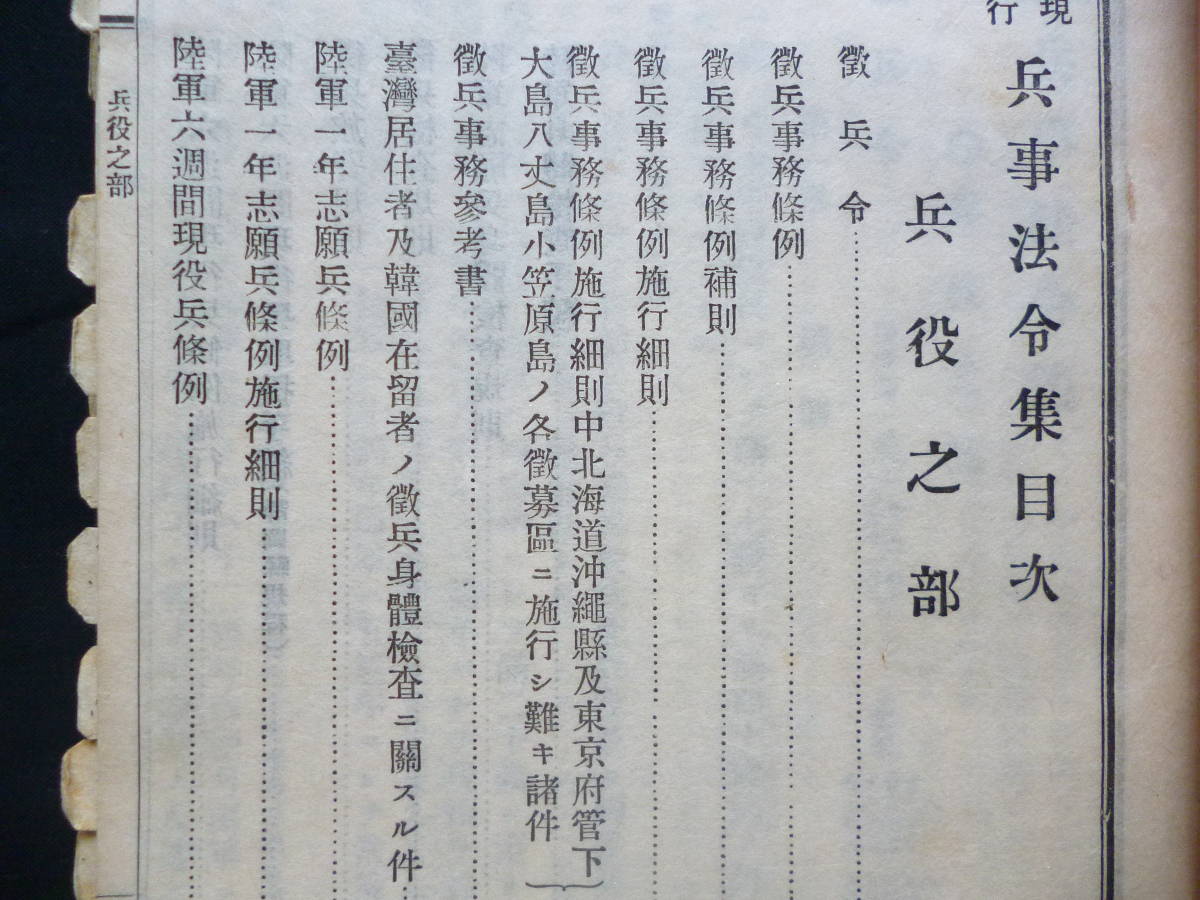 現行
兵事法令集目次
兵役之部
徵兵令
徵兵事務條例
徵兵事務條例補則
徵兵事務條例施行細則
徵兵事務條例施行細則中北海道沖繩縣及東京府管下
大島八丈島小笠原島ノ各徵募區ニ施行シ難キ諸件
徵兵事務參考書
臺灣居住者及韓國在留者ノ徵兵身體檢查ニ關スル件
陸軍一年志願兵條例
陸軍一年志願兵條例施行細則
陸軍六週間現役兵條例
兵役之部